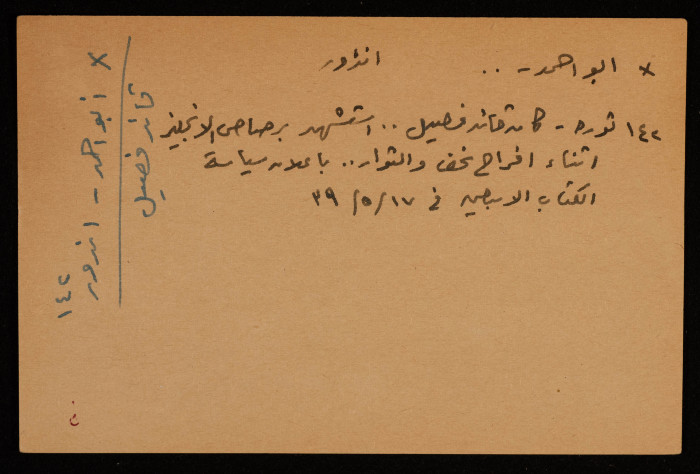 × ابو احمد - .. اندور
١٤٢ ثوره - كان قائد فصيل .. استشهد برصاص الانجليز
اثناء افراح والثوار .. باعلان سياسة
الكتاب الابيض في ١٧/٥/٣٩
× ابو احمد - اندور ١٤٢
قائد فصيل